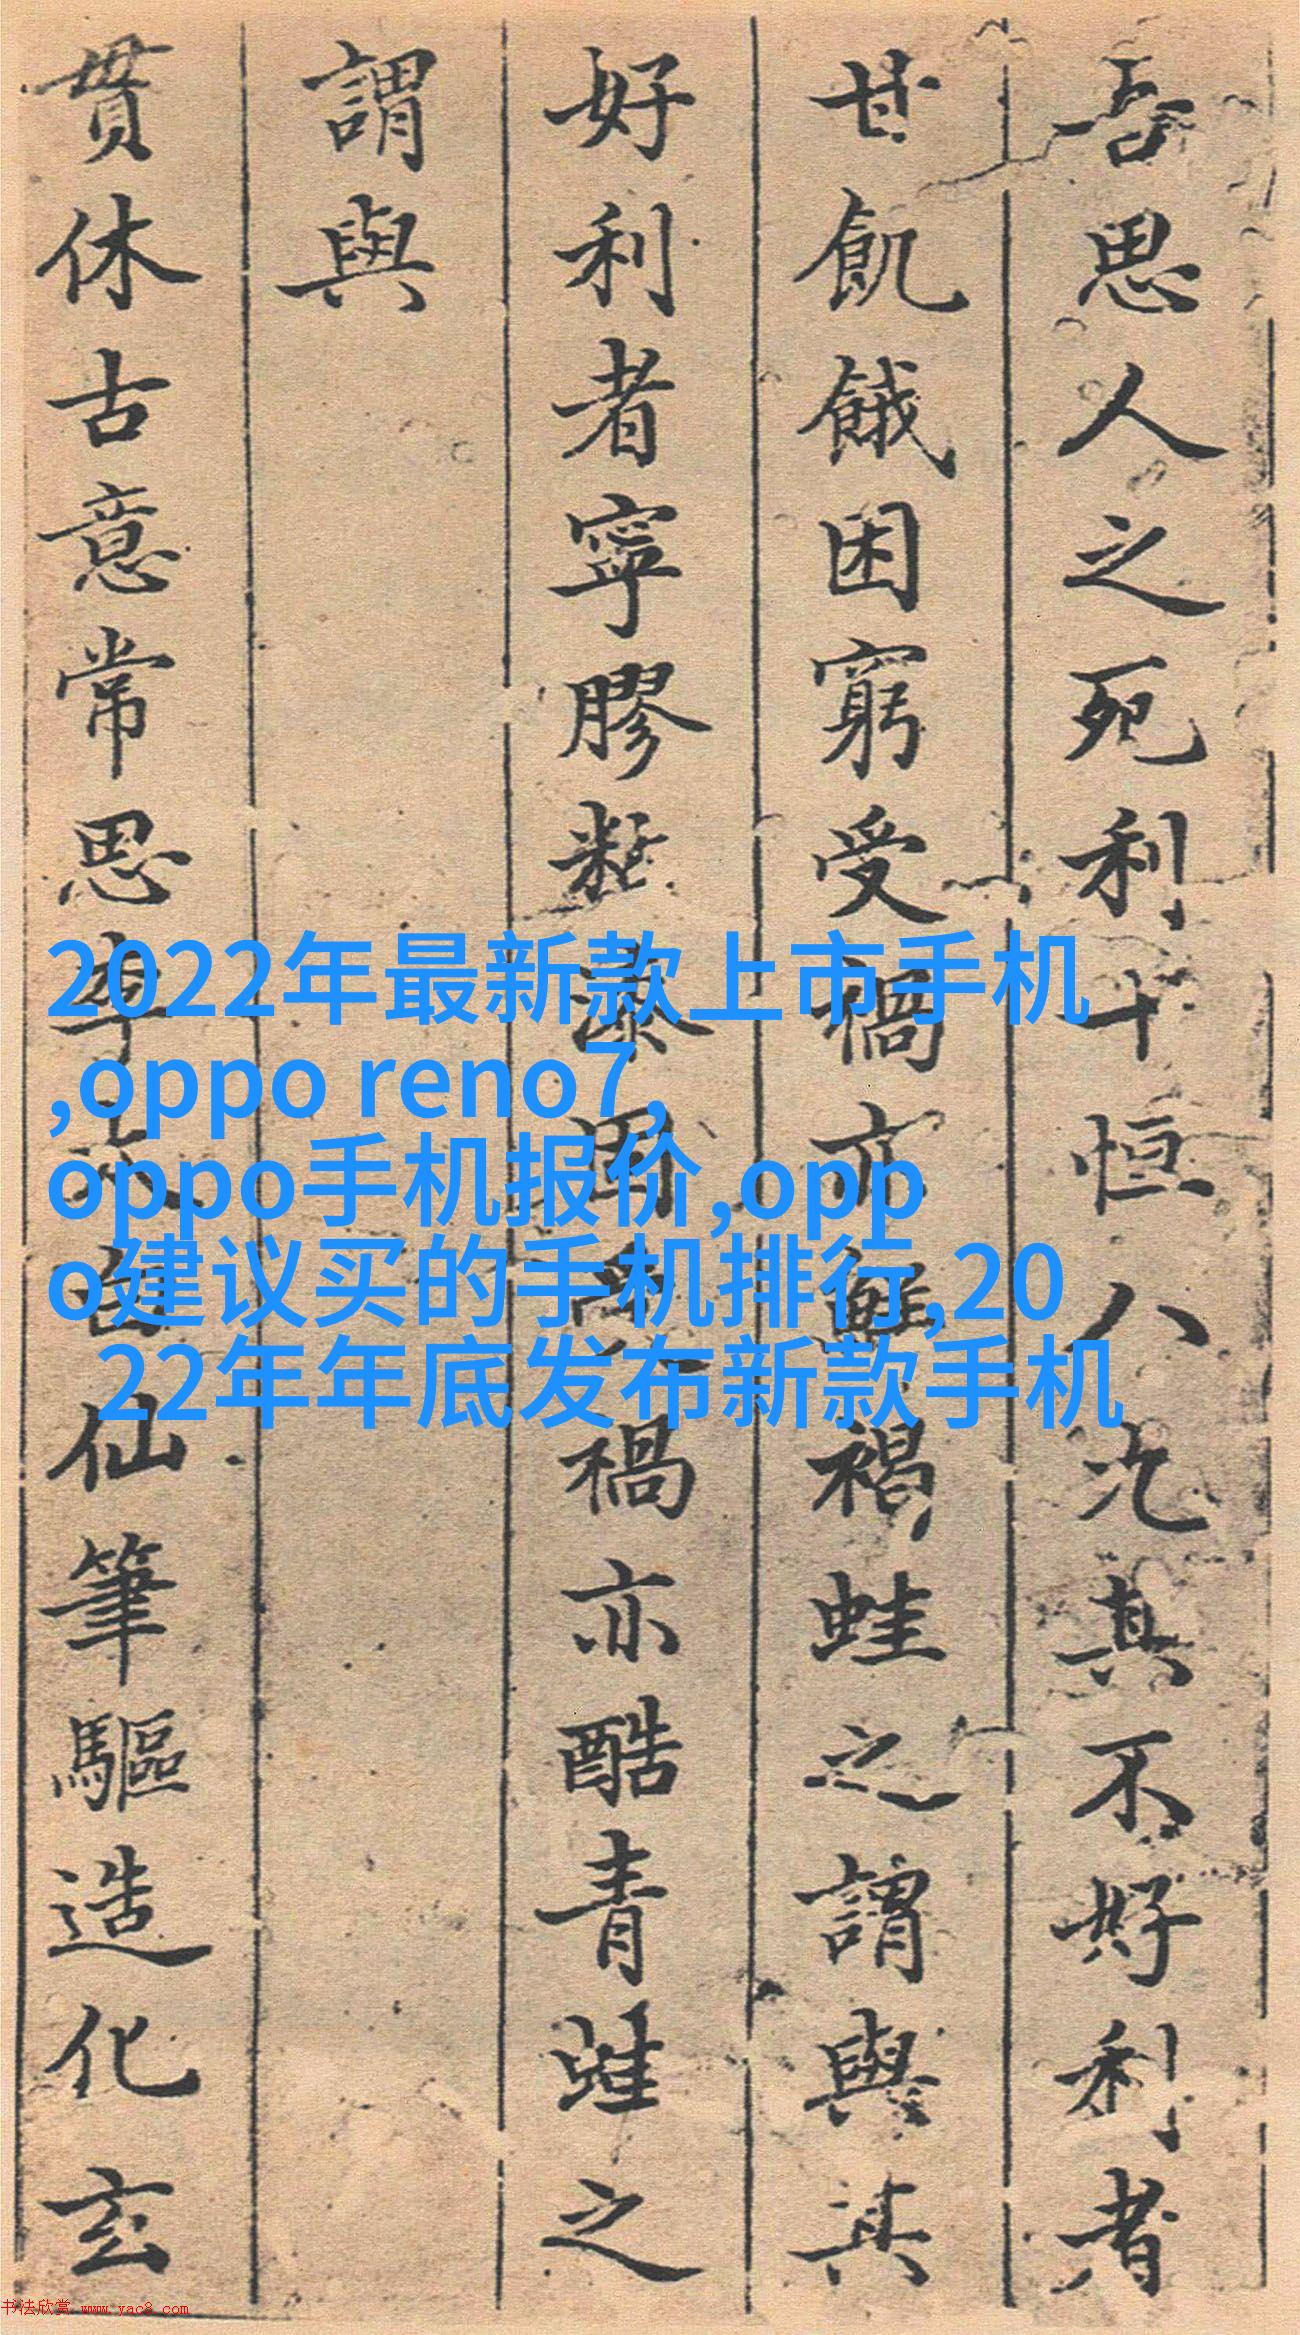 吾思人之死利十恒八其不好利者
甘飢餓困窮受禍亦褐蛙之謂與其
好利者寧膠固禍亦酷青蛙之
謂與
貫休古意常思李太白仙筆驅造化玄
2022年最新款上市手机
,oppo reno7,
oppo手机报价,opp
o建议买的手机排行,20
22年年底发布新款手机
书法欣赏 www.yac8.com